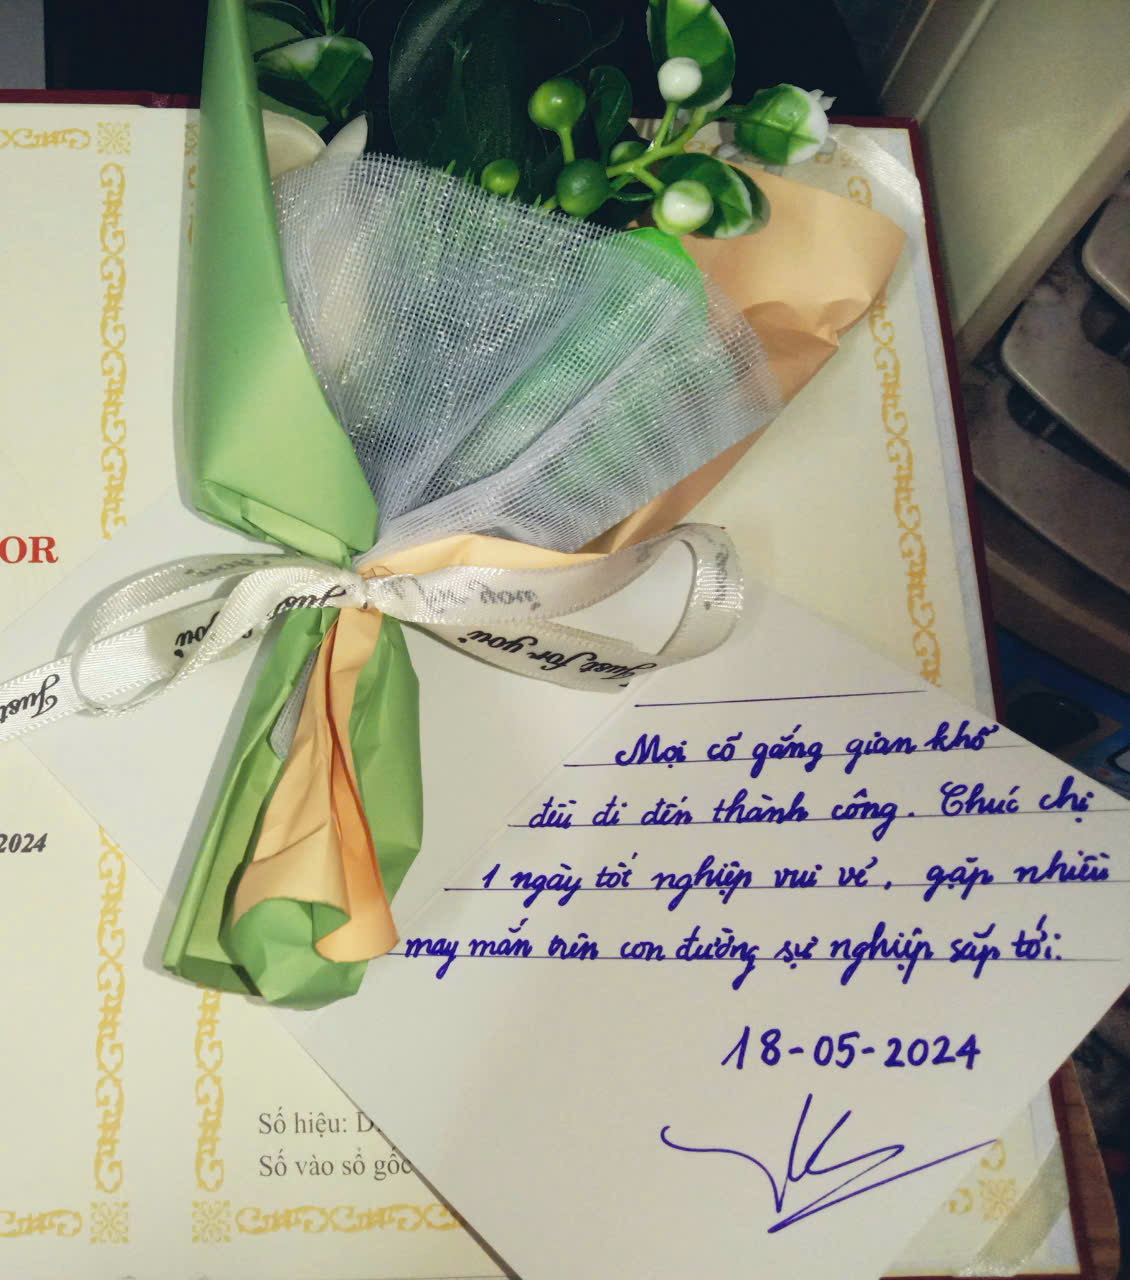 OR
Just for you
Just for you
Just
Mọi cố gắng gian khổ
đều đi đến thành công. Chúc chị
1 ngày tốt nghiệp vui vẻ, gặp nhiều
may mắn trên con đường sự nghiệp sắp tới.
2024
18-05-2024
Số hiệu: D
Số vào sổ gốc